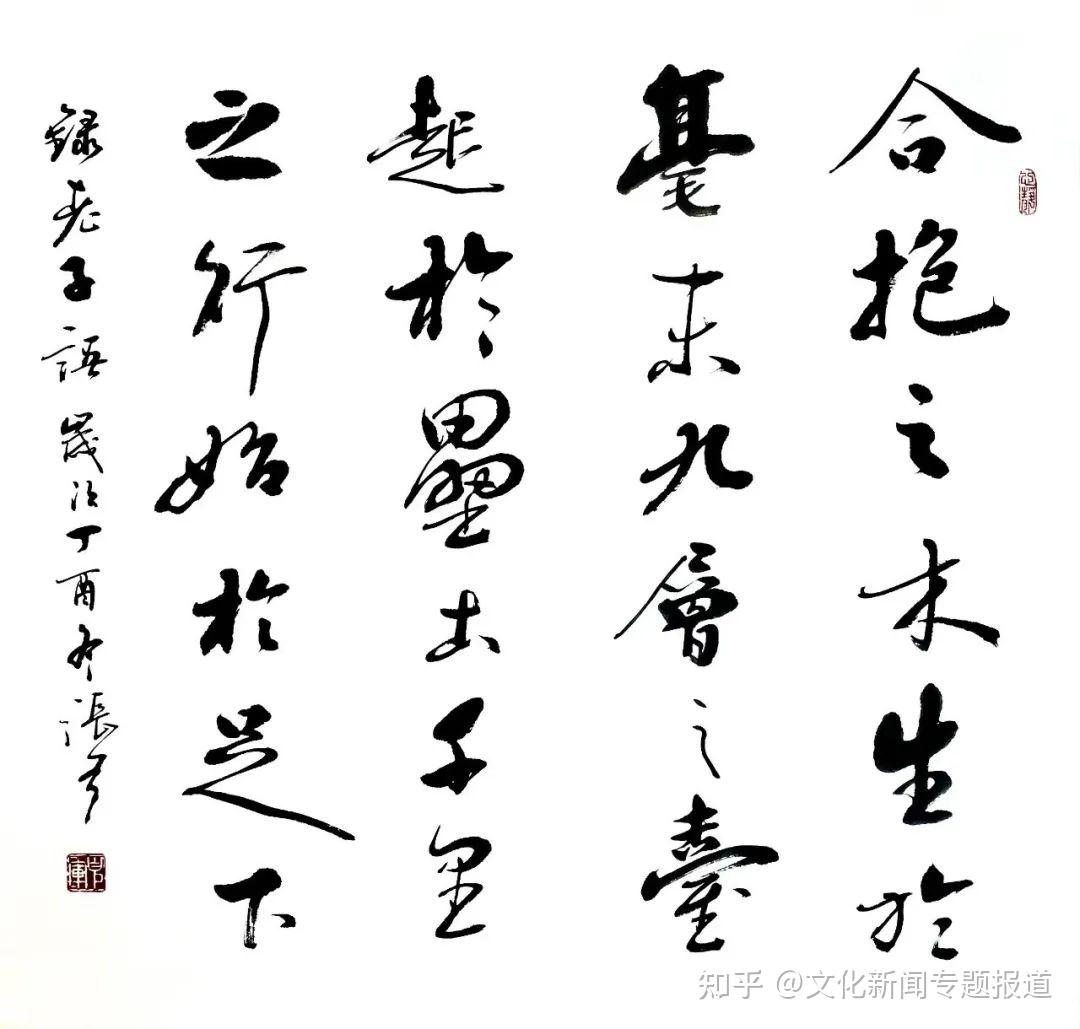 合抱之木生於
毫末九層之臺
起於壘土千里
之行始於足下
錄老子語歲次丁酉冬張
知乎 @文化新闻专题报道